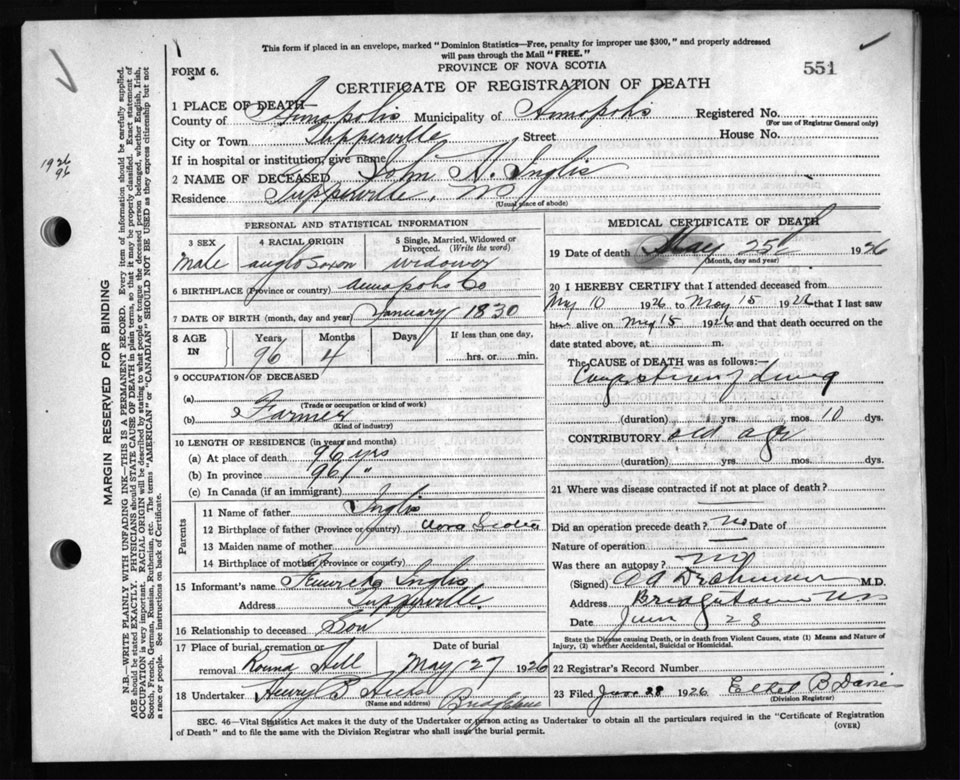 This form if placed in an envelope, marked "Dominion Statistics—Free, penalty for improper use $300," and properly addressed
will pass through the Mail "FREE."
FORM 6.
PROVINCE OF NOVA SCOTIA
551
CERTIFICATE OF REGISTRATION OF DEATH
1 PLACE OF DEATH—
County of Annapolis Municipality of Annapolis Registered No.
(For use of Registrar General only)
City or Town Tupperville Street House No.
If in hospital or institution, give name
2 NAME OF DECEASED John A. Inglis
Residence Tupperville,
(Usual place of abode)
1926
96
MARGIN RESERVED FOR BINDING
N.B.—WRITE PLAINLY WITH UNFADING INK—THIS IS A PERMANENT RECORD. Every item of information should be carefully supplied.
AGE should be stated EXACTLY. PHYSICIANS should STATE CAUSE OF DEATH in plain terms, so that it may be properly classified. Exact statement of
OCCUPATION is very important. RACIAL ORIGIN will be described by stating to what people or tongue the deceased person belonged, whether English, Irish,
Scotch, French, German, Russian, Ruthenian, etc. The terms "AMERICAN" or "CANADIAN" SHOULD NOT BE USED as they express citizenship but not
a race or people. See instructions on back of Certificate.
PERSONAL AND STATISTICAL INFORMATION
3 SEX
Male
4 RACIAL ORIGIN
Anglo Saxon
5 Single, Married, Widowed or
Divorced. (Write the word)
widower
6 BIRTHPLACE (Province or country) Annapolis Co
7 DATE OF BIRTH (month, day and year) January 1830
8 AGE
IN
Years Months Days If less than one day,
96 4 hrs. or min.
9 OCCUPATION OF DECEASED
(a)
(Trade or occupation or kind of work)
(b) Farmer
(Kind of industry)
10 LENGTH OF RESIDENCE (in years and months)
(a) At place of death 96 yrs
(b) In province 96 "
(c) In Canada (if an immigrant)
Parents
11 Name of father Inglis
12 Birthplace of father (Province or country) Nova Scotia
13 Maiden name of mother
14 Birthplace of mother (Province or country)
15 Informant's name Inglis
Address Tupperville.
16 Relationship to deceased Son
17 Place of burial, cremation or
removal Round Hill
Date of burial
May 27 1926
18 Undertaker Henry B Hicks
(Name and address) Bridgetown
MEDICAL CERTIFICATE OF DEATH
19 Date of death May 25 1926
(Month, day and year)
20 I HEREBY CERTIFY that I attended deceased from
May 10 1926 to May 15 1926 that I last saw
him alive on May 15 1926 and that death occurred on
the date stated above, at m.
The CAUSE of DEATH was as follows:
Congestion of lung
(duration) yrs. mos. 10 dys.
CONTRIBUTORY old age
(duration) yrs. mos. dys.
21 Where was disease contracted if not at place of death?
Did an operation precede death? no Date of
Nature of operation
Was there an autopsy? no
(Signed) M.D.
Address Bridgetown NS
Date June 28
State the Disease causing Death, or in death from Violent Causes, state (1) Means and Nature of
Injury, (2) whether Accidental, Suicidal or Homicidal.
22 Registrar's Record Number
23 Filed June 28 1926 Ethel B Davies
(Division Registrar)
SEC. 46—Vital Statistics Act makes it the duty of the Undertaker or person acting as Undertaker to obtain all the particulars required in the "Certificate of Registration
of Death" and to file the same with the Division Registrar who shall issue the burial permit.
(OVER)